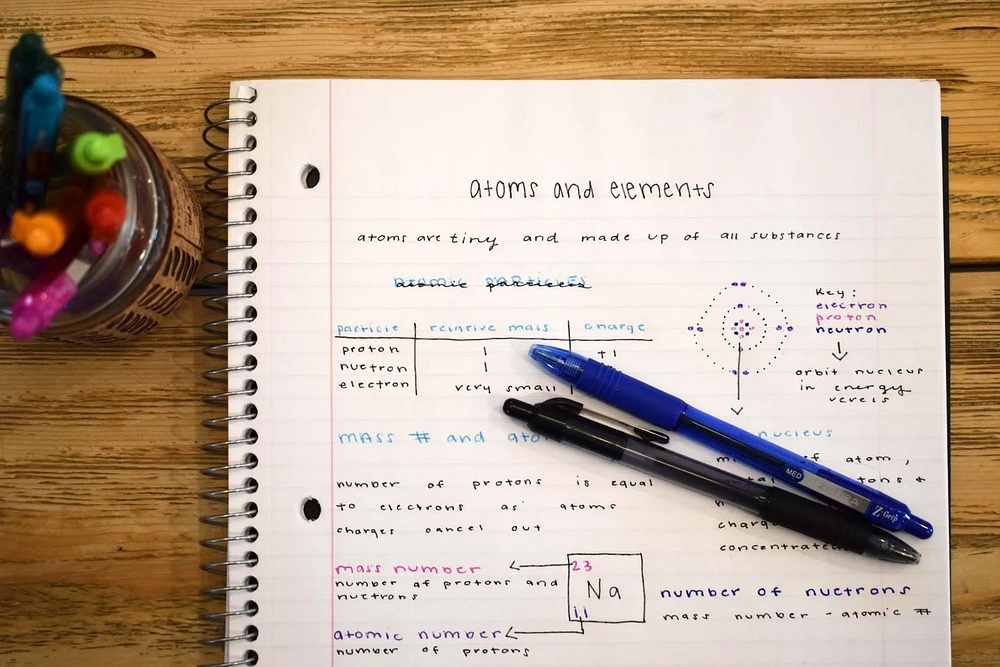 atoms and elements
atoms are tiny and made up of all substances
atomic particles
particle relative mass charge
proton 1 +1
nuetron 1
electron very small
Key:
electron
proton
neutron
orbit nucleus
in energy
mass # and
nucleus
of atom,
number of protons is equal
to electrons as atoms
charges cancel out
MED
Z-Grip
mass number
number of protons and
nuetrons
23
Na
11
atomic number
number of protons
number of nuetrons
mass number - atomic #